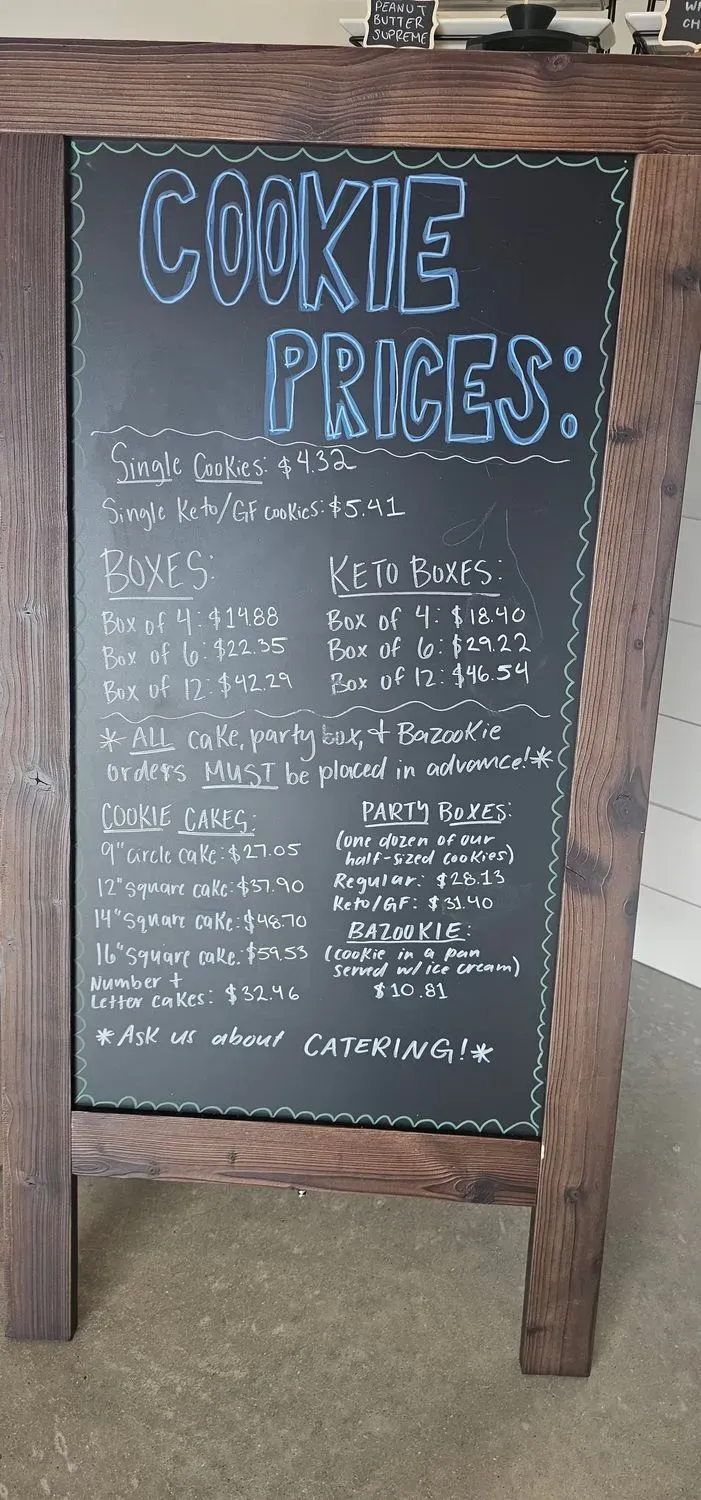 PEANUT
BUTTER
SUPREME
COOKIE
PRICES:
Single Cookies: $4.32
Single Keto/GF cookies: $5.41
BOXES:
Box of 4: $14.88
Box of 6: $22.35
Box of 12: $42.29
KETO BOXES:
Box of 4: $18.40
Box of 6: $29.22
Box of 12: $46.54
*ALL cake, party box, + Bazookie
orders MUST be placed in advance!*
COOKIE CAKES:
9" circle cake: $27.05
12" square cake: $37.90
14" square cake: $48.70
16" square cake: $59.53
Number +
Letter cakes: $32.46
PARTY BOXES:
(one dozen of our
half-sized cookies)
Regular: $28.13
Keto/GF: $31.40
BAZOOKIE:
(cookie in a pan
served w/ ice cream)
$10.81
*Ask us about CATERING!*